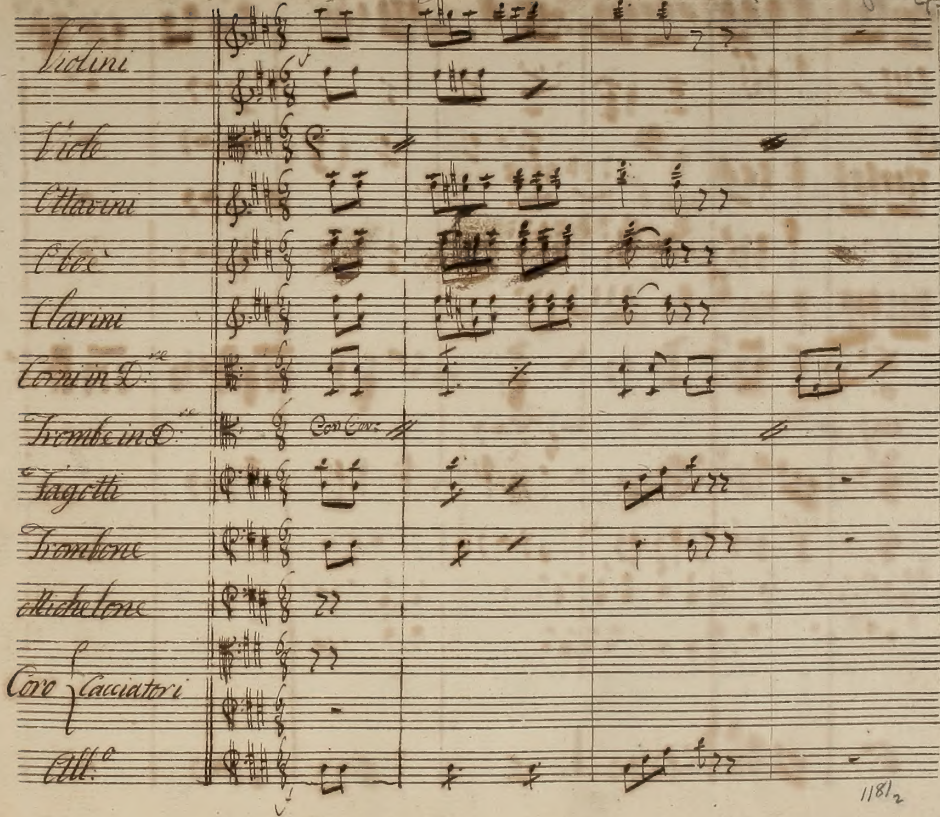 Violini
Viole
Ottavini
Oboè
Clarini
Corni in D:re
Trombe in D:re
Con Cor:
Fagotti
Trombone
Michelone
Coro Cacciatori
All:o
1181 2